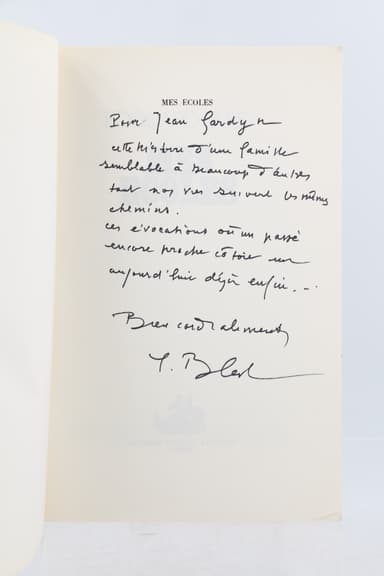 MES ÉCOLES
Pour Jean Gardyn
cette histoire d'une famille
semblable à beaucoup d'autres
tant nos vies suivent les mêmes
chemins.
ces évocations où un passé
encore proche côtoie un
aujourd'hui déjà enfui. -
Bien cordialement